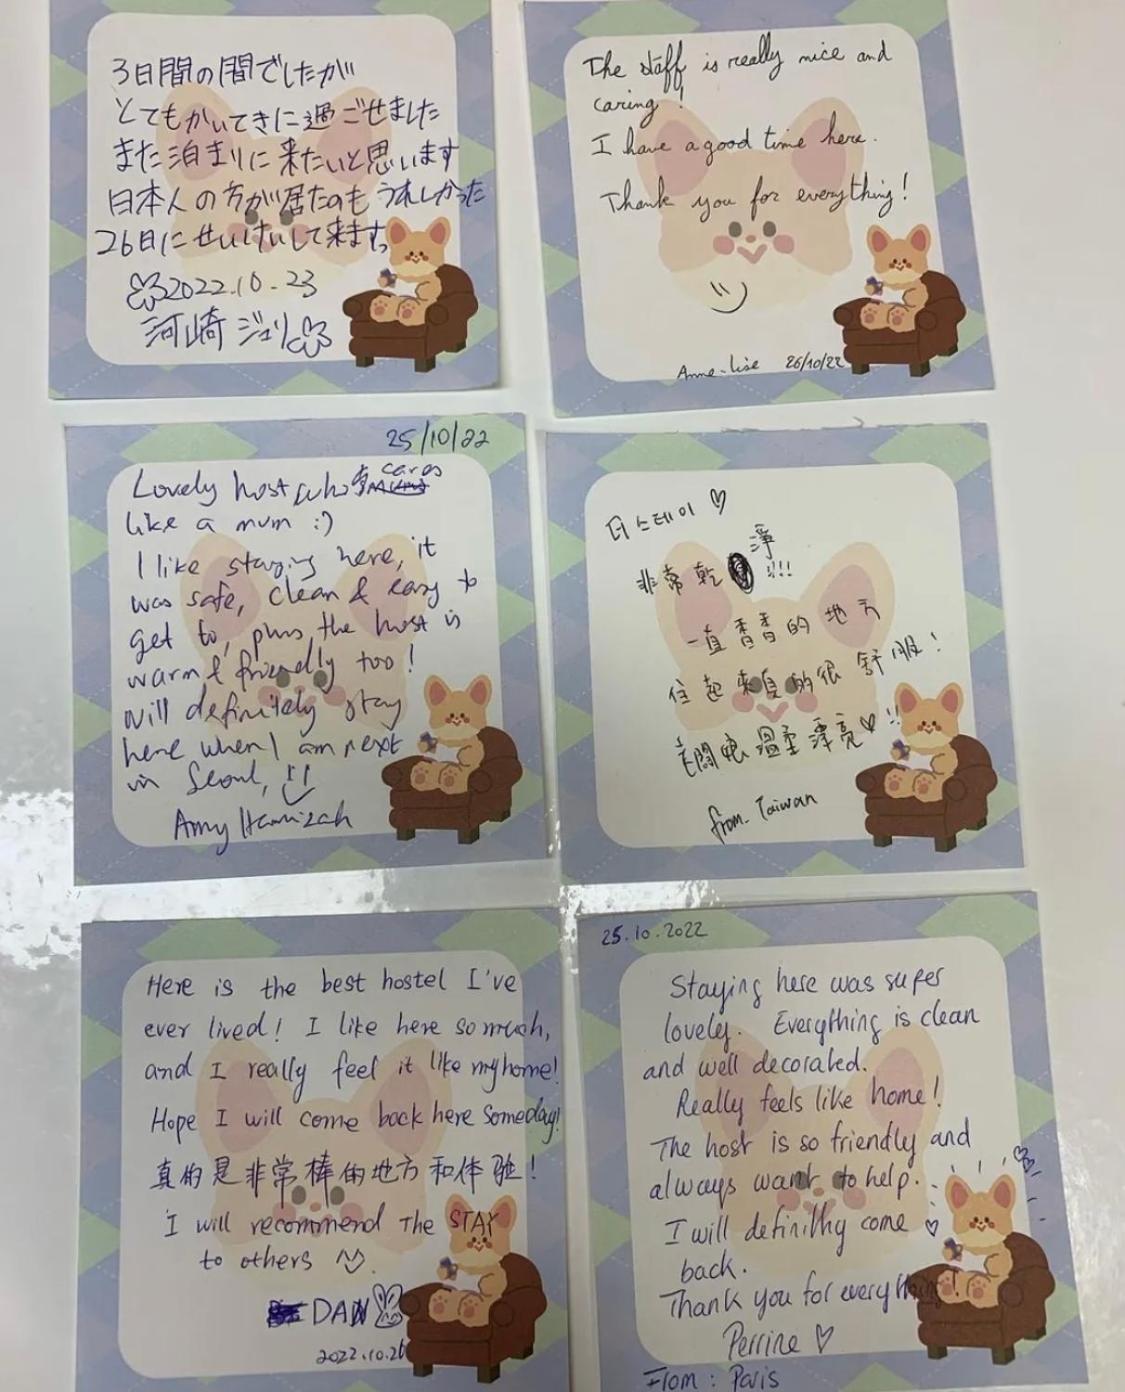 3日間の間でしたが
とてもかいてきに過ごせました
また泊まりに来たいと思います
日本人の方が居たのもうれしかった
26日にせいけいして来ます
2022.10.23
河崎ジュリ
The staff is really nice and
caring!
I have a good time here.
Thank you for everything!
Anne-Lise 26/10/22
25/10/22
Lovely host who cares
like a mum :)
I like staying here, it
was safe, clean & easy to
get to, plus the host is
warm & friendly too!
Will definitely stay
here when I am next
in Seoul,
Amy Hamizah
더스테이 ♡
非常乾淨!!!
一直香香的地方
住起來真的很舒服!
老闆娘溫柔漂亮♡!!
from. Taiwan
Here is the best hostel I've
ever lived! I like here so much,
and I really feel it like my home!
Hope I will come back here someday!
真的是非常棒的地方和体验!
I will recommend The STAY
to others
DAN
2022.10.26
25.10.2022
Staying here was super
lovely. Everything is clean
and well decorated.
Really feels like home!
The host is so friendly and
always want to help.
I will definithy come ♡
back.
Thank you for everything!
Perrine ♡
From : Paris